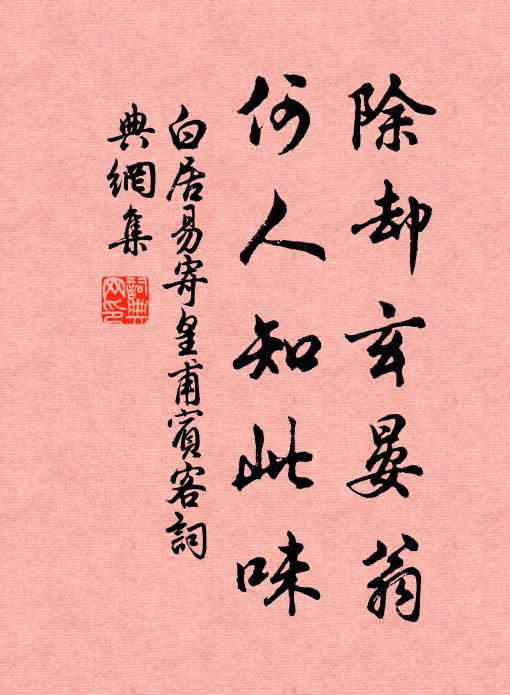 除却玄晏翁
何人知此味
白居易寄皇甫賓客詞
典網集
詞典
网印